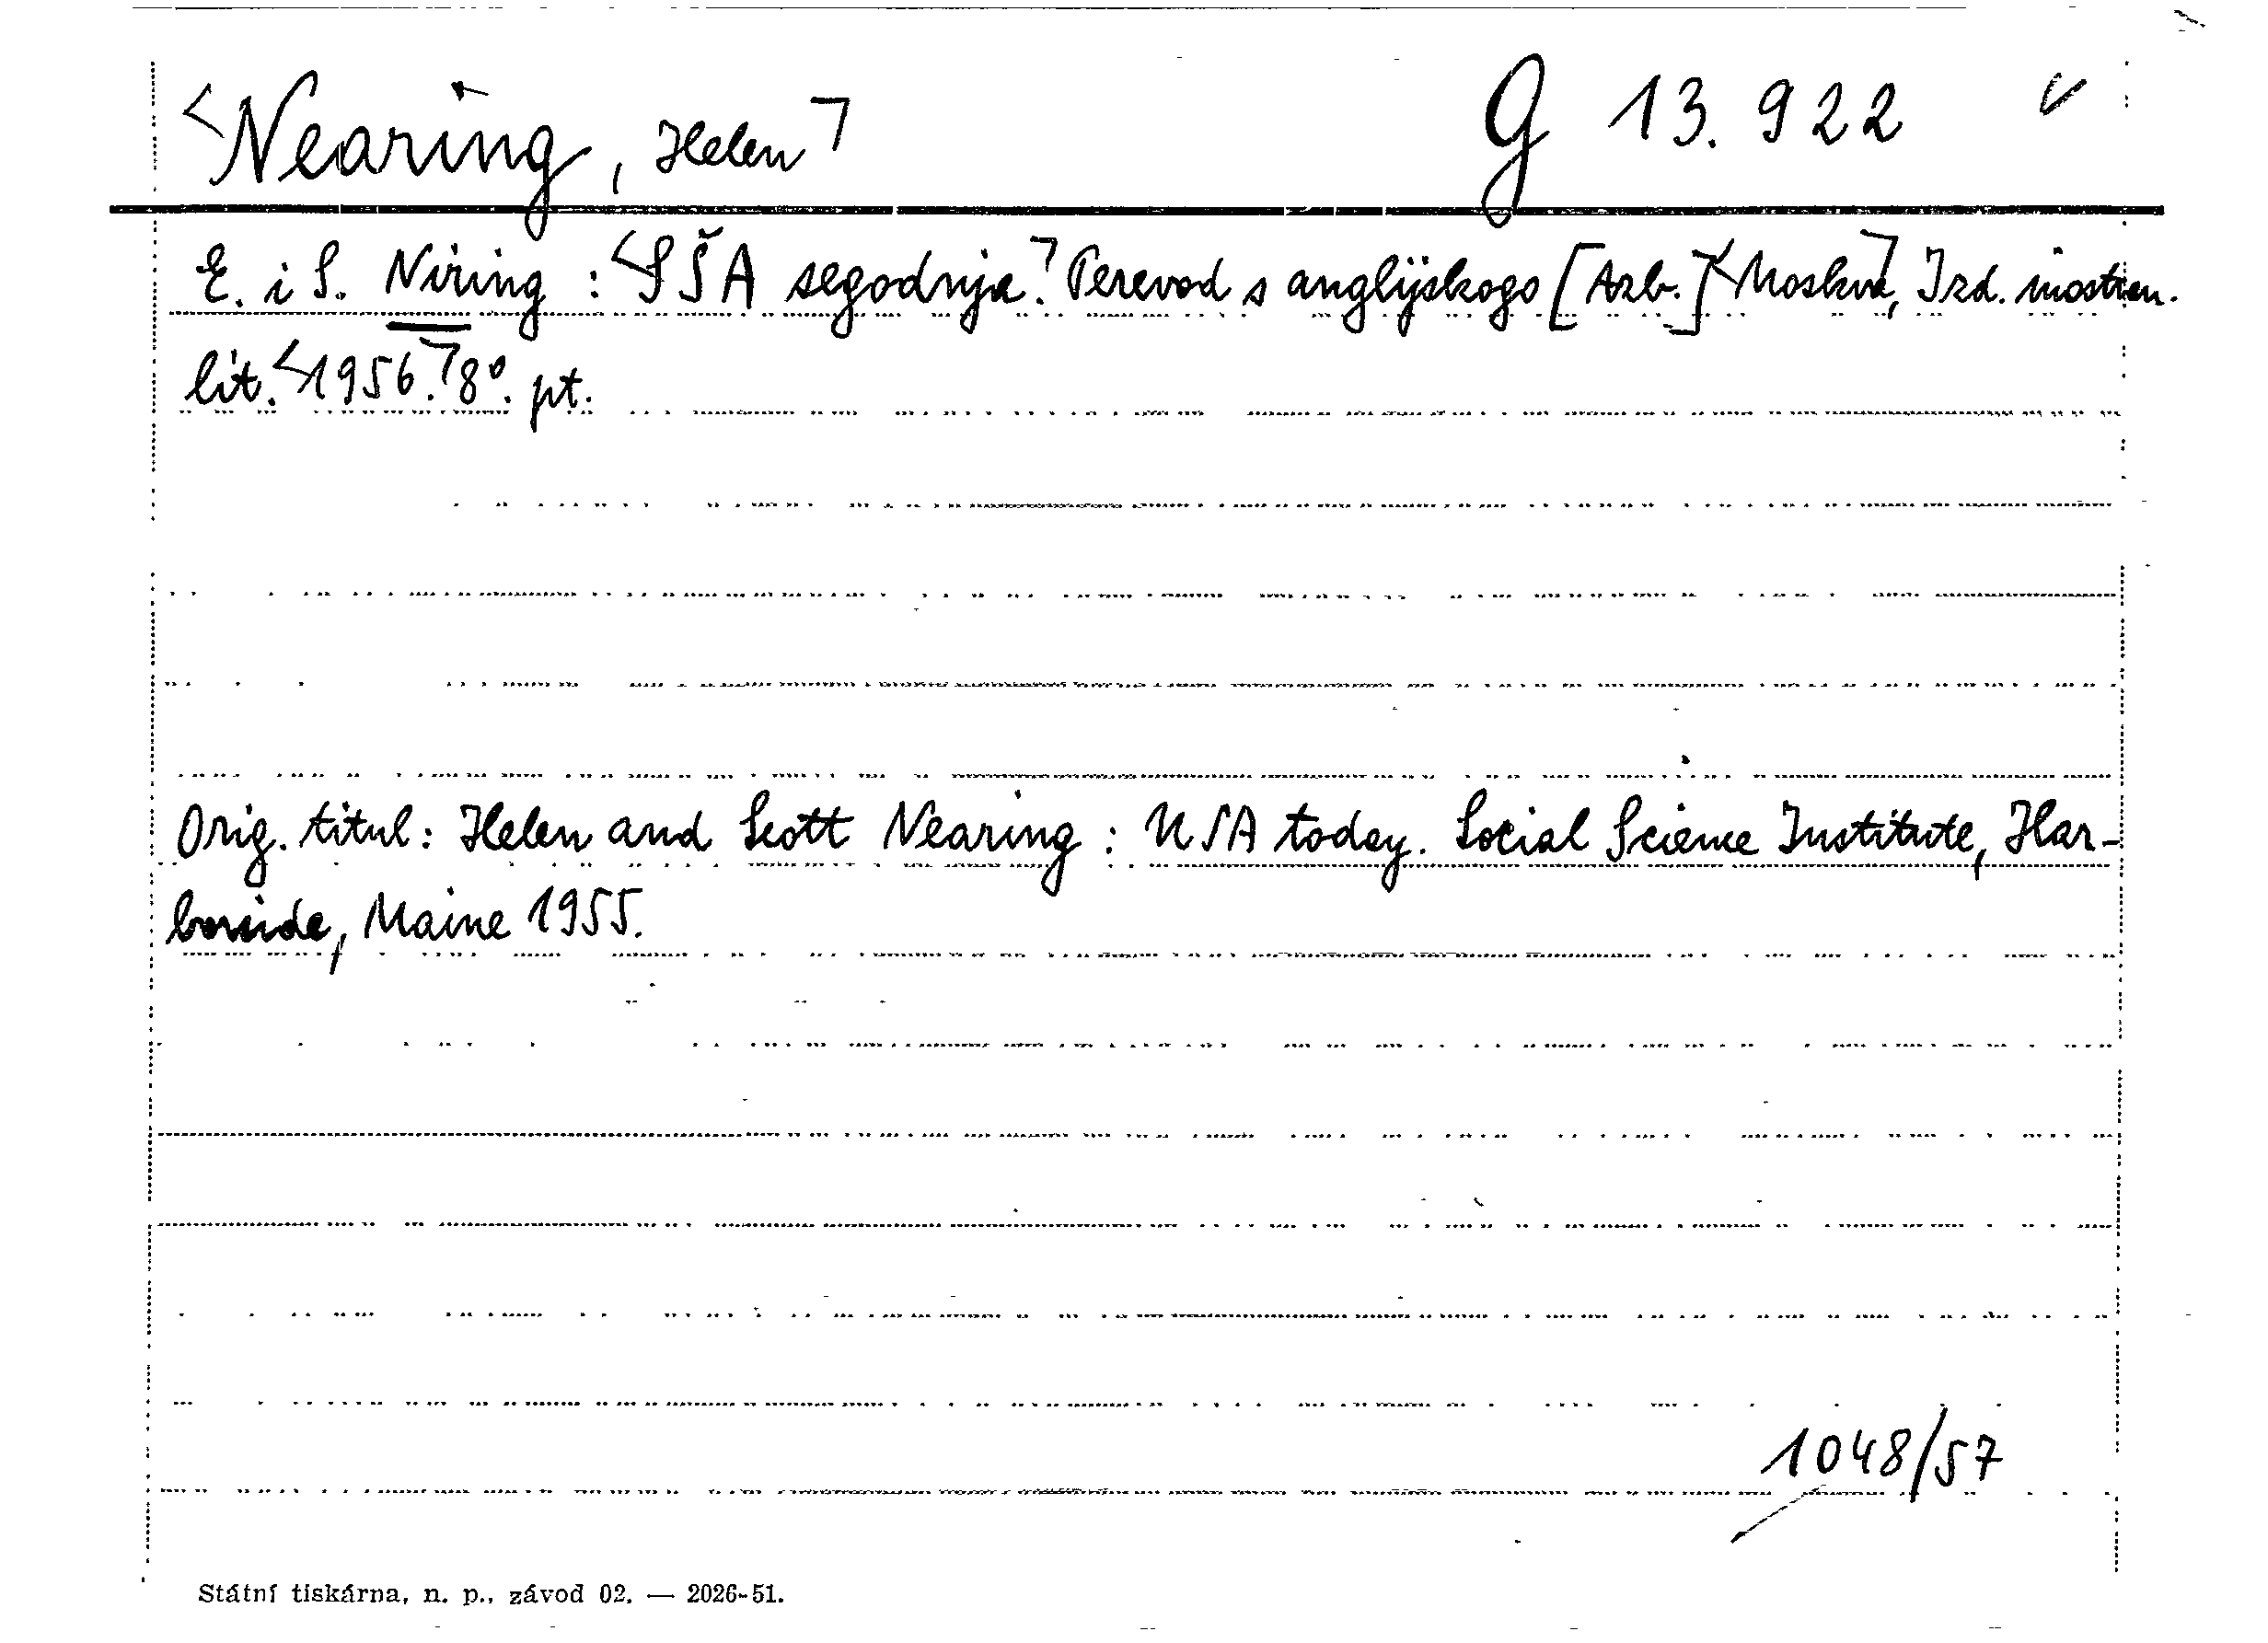 <Nearing, Helen> G 13.922
E. i S. Niring : <SŠA segodnja.> Perevod s anglijskogo [Azb.] <Moskva>, Izd. inostran.
lit. <1956.> 8°. pt.
Orig. titul: Helen and Scott Nearing : USA today. Social Science Institute, Har-
borside, Maine 1955.
1048/57
Státní tiskárna, n. p., závod 02. — 2026-51.